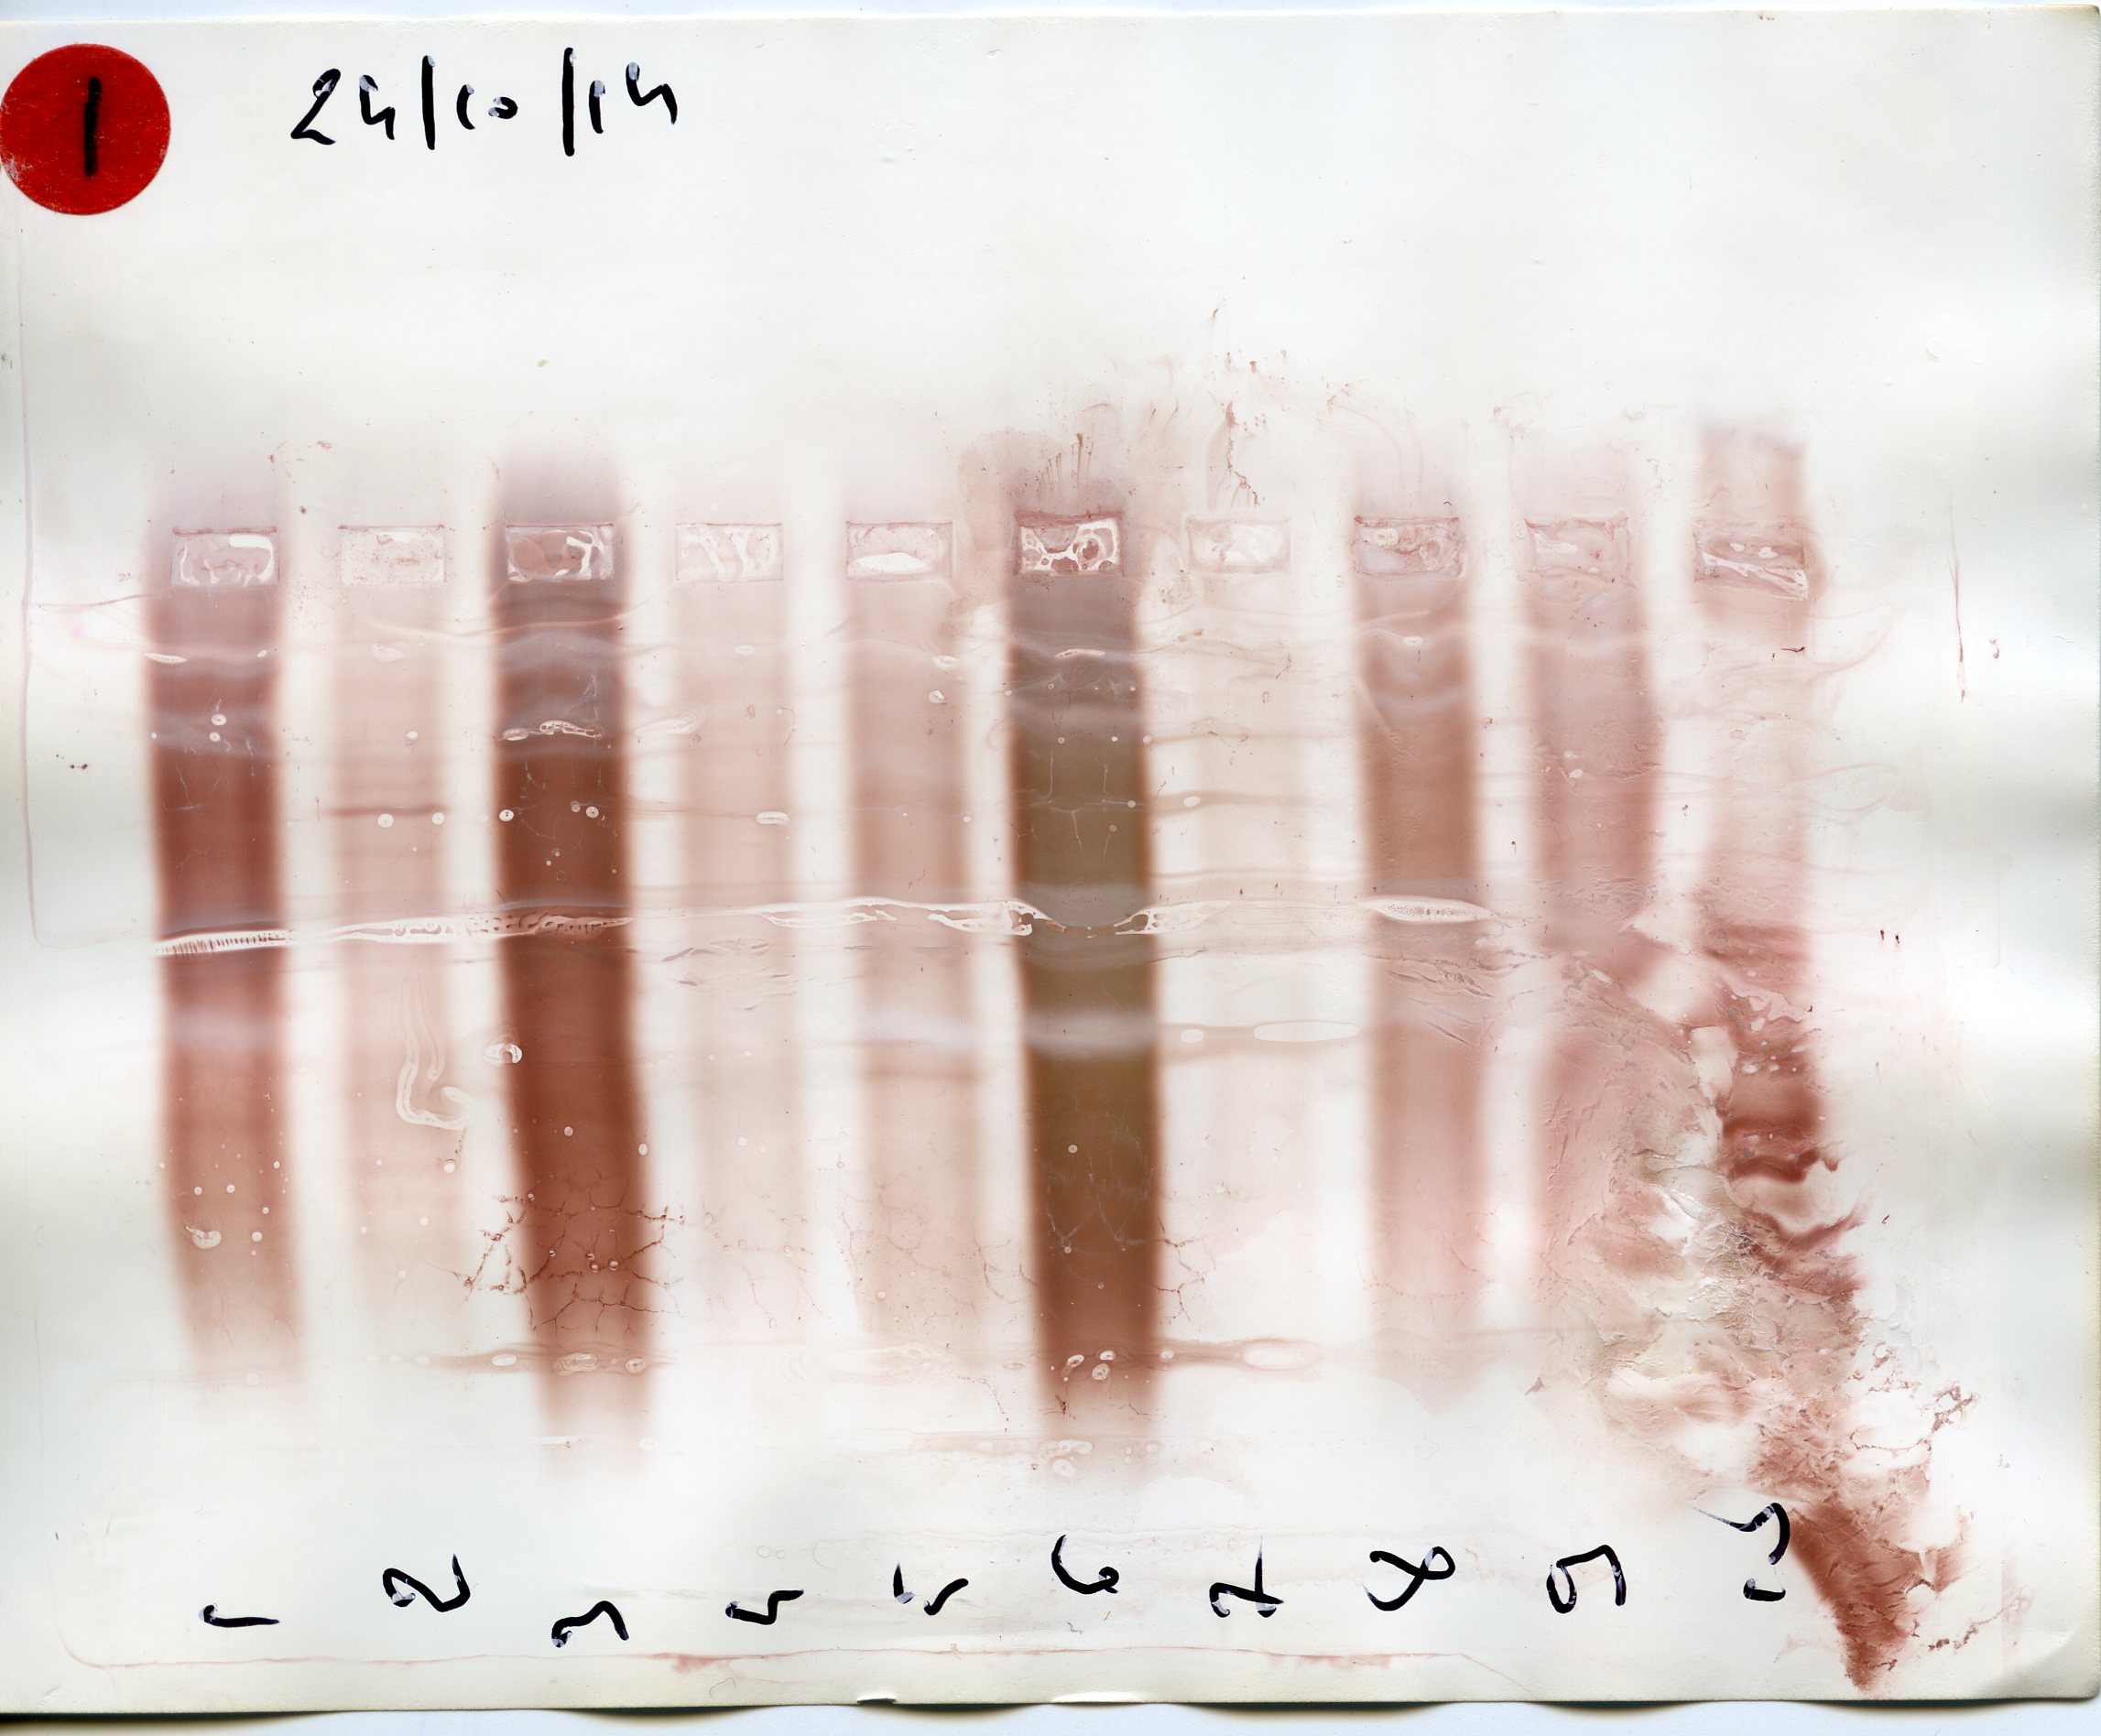 1
24/10/14
1 2 3 4 5 6 7 8 9 10